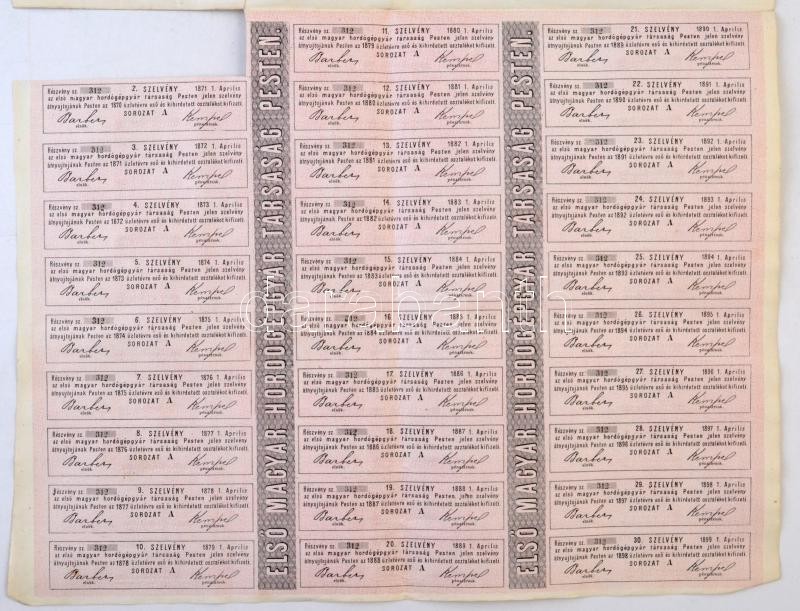 Részvény sz. 312 2. SZELVÉNY 1871 1. Április
az első magyar hordógépgyár társaság Pesten jelen szelvény
átnyujtójának Pesten az 1870 üzletévre eső és kihirdetett osztalékot kifizeti.
SOROZAT A
Barbers Kempel
elnök. pénztárnok.
Részvény sz. 312 3. SZELVÉNY 1872 1. Április
az első magyar hordógépgyár társaság Pesten jelen szelvény
átnyujtójának Pesten az 1871 üzletévre eső és kihirdetett osztalékot kifizeti.
SOROZAT A
Barbers Kempel
elnök. pénztárnok.
Részvény sz. 312 4. SZELVÉNY 1873 1. Április
az első magyar hordógépgyár társaság Pesten jelen szelvény
átnyujtójának Pesten az 1872 üzletévre eső és kihirdetett osztalékot kifizeti.
SOROZAT A
Barbers Kempel
elnök. pénztárnok.
Részvény sz. 312 5. SZELVÉNY 1874 1. Április
az első magyar hordógépgyár társaság Pesten jelen szelvény
átnyujtójának Pesten az 1873 üzletévre eső és kihirdetett osztalékot kifizeti.
SOROZAT A
Barbers Kempel
elnök. pénztárnok.
Részvény sz. 312 6. SZELVÉNY 1875 1. Április
az első magyar hordógépgyár társaság Pesten jelen szelvény
átnyujtójának Pesten az 1874 üzletévre eső és kihirdetett osztalékot kifizeti.
SOROZAT A
Barbers Kempel
elnök. pénztárnok.
Részvény sz. 312 7. SZELVÉNY 1876 1. Április
az első magyar hordógépgyár társaság Pesten jelen szelvény
átnyujtójának Pesten az 1875 üzletévre eső és kihirdetett osztalékot kifizeti.
SOROZAT A
Barbers Kempel
elnök. pénztárnok.
Részvény sz. 312 8. SZELVÉNY 1877 1. Április
az első magyar hordógépgyár társaság Pesten jelen szelvény
átnyujtójának Pesten az 1876 üzletévre eső és kihirdetett osztalékot kifizeti.
SOROZAT A
Barbers Kempel
elnök. pénztárnok.
Részvény sz. 312 9. SZELVÉNY 1878 1. Április
az első magyar hordógépgyár társaság Pesten jelen szelvény
átnyujtójának Pesten az 1877 üzletévre eső és kihirdetett osztalékot kifizeti.
SOROZAT A
Barbers Kempel
elnök. pénztárnok.
Részvény sz. 312 10. SZELVÉNY 1879 1. Április
az első magyar hordógépgyár társaság Pesten jelen szelvény
átnyujtójának Pesten az 1878 üzletévre eső és kihirdetett osztalékot kifizeti.
SOROZAT A
Barbers Kempel
elnök. pénztárnok.
ELSŐ MAGYAR HORDÓGÉPGYÁR TÁRSASÁG PESTEN.
Részvény sz. 312 11. SZELVÉNY 1880 1. Április
az első magyar hordógépgyár társaság Pesten jelen szelvény
átnyujtójának Pesten az 1879 üzletévre eső és kihirdetett osztalékot kifizeti.
SOROZAT A
Barbers Kempel
elnök. pénztárnok.
Részvény sz. 312 12. SZELVÉNY 1881 1. Április
az első magyar hordógépgyár társaság Pesten jelen szelvény
átnyujtójának Pesten az 1880 üzletévre eső és kihirdetett osztalékot kifizeti.
SOROZAT A
Barbers Kempel
elnök. pénztárnok.
Részvény sz. 312 13. SZELVÉNY 1882 1. Április
az első magyar hordógépgyár társaság Pesten jelen szelvény
átnyujtójának Pesten az 1881 üzletévre eső és kihirdetett osztalékot kifizeti.
SOROZAT A
Barbers Kempel
elnök. pénztárnok.
Részvény sz. 312 14. SZELVÉNY 1883 1. Április
az első magyar hordógépgyár társaság Pesten jelen szelvény
átnyujtójának Pesten az 1882 üzletévre eső és kihirdetett osztalékot kifizeti.
SOROZAT A
Barbers Kempel
elnök. pénztárnok.
Részvény sz. 312 15. SZELVÉNY 1884 1. Április
az első magyar hordógépgyár társaság Pesten jelen szelvény
átnyujtójának Pesten az 1883 üzletévre eső és kihirdetett osztalékot kifizeti.
SOROZAT A
Barbers Kempel
elnök. pénztárnok.
Részvény sz. 312 16. SZELVÉNY 1885 1. Április
az első magyar hordógépgyár társaság Pesten jelen szelvény
átnyujtójának Pesten az 1884 üzletévre eső és kihirdetett osztalékot kifizeti.
SOROZAT A
Barbers Kempel
elnök. pénztárnok.
Részvény sz. 312 17. SZELVÉNY 1886 1. Április
az első magyar hordógépgyár társaság Pesten jelen szelvény
átnyujtójának Pesten az 1885 üzletévre eső és kihirdetett osztalékot kifizeti.
SOROZAT A
Barbers Kempel
elnök. pénztárnok.
Részvény sz. 312 18. SZELVÉNY 1887 1. Április
az első magyar hordógépgyár társaság Pesten jelen szelvény
átnyujtójának Pesten az 1886 üzletévre eső és kihirdetett osztalékot kifizeti.
SOROZAT A
Barbers Kempel
elnök. pénztárnok.
Részvény sz. 312 19. SZELVÉNY 1888 1. Április
az első magyar hordógépgyár társaság Pesten jelen szelvény
átnyujtójának Pesten az 1887 üzletévre eső és kihirdetett osztalékot kifizeti.
SOROZAT A
Barbers Kempel
elnök. pénztárnok.
Részvény sz. 312 20. SZELVÉNY 1889 1. Április
az első magyar hordógépgyár társaság Pesten jelen szelvény
átnyujtójának Pesten az 1888 üzletévre eső és kihirdetett osztalékot kifizeti.
SOROZAT A
Barbers Kempel
elnök. pénztárnok.
ELSŐ MAGYAR HORDÓGÉPGYÁR TÁRSASÁG PESTEN.
Részvény sz. 312 21. SZELVÉNY 1890 1. Április
az első magyar hordógépgyár társaság Pesten jelen szelvény
átnyujtójának Pesten az 1889 üzletévre eső és kihirdetett osztalékot kifizeti.
SOROZAT A
Barbers Kempel
elnök. pénztárnok.
Részvény sz. 312 22. SZELVÉNY 1891 1. Április
az első magyar hordógépgyár társaság Pesten jelen szelvény
átnyujtójának Pesten az 1890 üzletévre eső és kihirdetett osztalékot kifizeti.
SOROZAT A
Barbers Kempel
elnök. pénztárnok.
Részvény sz. 312 23. SZELVÉNY 1892 1. Április
az első magyar hordógépgyár társaság Pesten jelen szelvény
átnyujtójának Pesten az 1891 üzletévre eső és kihirdetett osztalékot kifizeti.
SOROZAT A
Barbers Kempel
elnök. pénztárnok.
Részvény sz. 312 24. SZELVÉNY 1893 1. Április
az első magyar hordógépgyár társaság Pesten jelen szelvény
átnyujtójának Pesten az 1892 üzletévre eső és kihirdetett osztalékot kifizeti.
SOROZAT A
Barbers Kempel
elnök. pénztárnok.
Részvény sz. 312 25. SZELVÉNY 1894 1. Április
az első magyar hordógépgyár társaság Pesten jelen szelvény
átnyujtójának Pesten az 1893 üzletévre eső és kihirdetett osztalékot kifizeti.
SOROZAT A
Barbers Kempel
elnök. pénztárnok.
Részvény sz. 312 26. SZELVÉNY 1895 1. Április
az első magyar hordógépgyár társaság Pesten jelen szelvény
átnyujtójának Pesten az 1894 üzletévre eső és kihirdetett osztalékot kifizeti.
SOROZAT A
Barbers Kempel
elnök. pénztárnok.
Részvény sz. 312 27. SZELVÉNY 1896 1. Április
az első magyar hordógépgyár társaság Pesten jelen szelvény
átnyujtójának Pesten az 1895 üzletévre eső és kihirdetett osztalékot kifizeti.
SOROZAT A
Barbers Kempel
elnök. pénztárnok.
Részvény sz. 312 28. SZELVÉNY 1897 1. Április
az első magyar hordógépgyár társaság Pesten jelen szelvény
átnyujtójának Pesten az 1896 üzletévre eső és kihirdetett osztalékot kifizeti.
SOROZAT A
Barbers Kempel
elnök. pénztárnok.
Részvény sz. 312 29. SZELVÉNY 1898 1. Április
az első magyar hordógépgyár társaság Pesten jelen szelvény
átnyujtójának Pesten az 1897 üzletévre eső és kihirdetett osztalékot kifizeti.
SOROZAT A
Barbers Kempel
elnök. pénztárnok.
Részvény sz. 312 30. SZELVÉNY 1899 1. Április
az első magyar hordógépgyár társaság Pesten jelen szelvény
átnyujtójának Pesten az 1898 üzletévre eső és kihirdetett osztalékot kifizeti.
SOROZAT A
Barbers Kempel
elnök. pénztárnok.